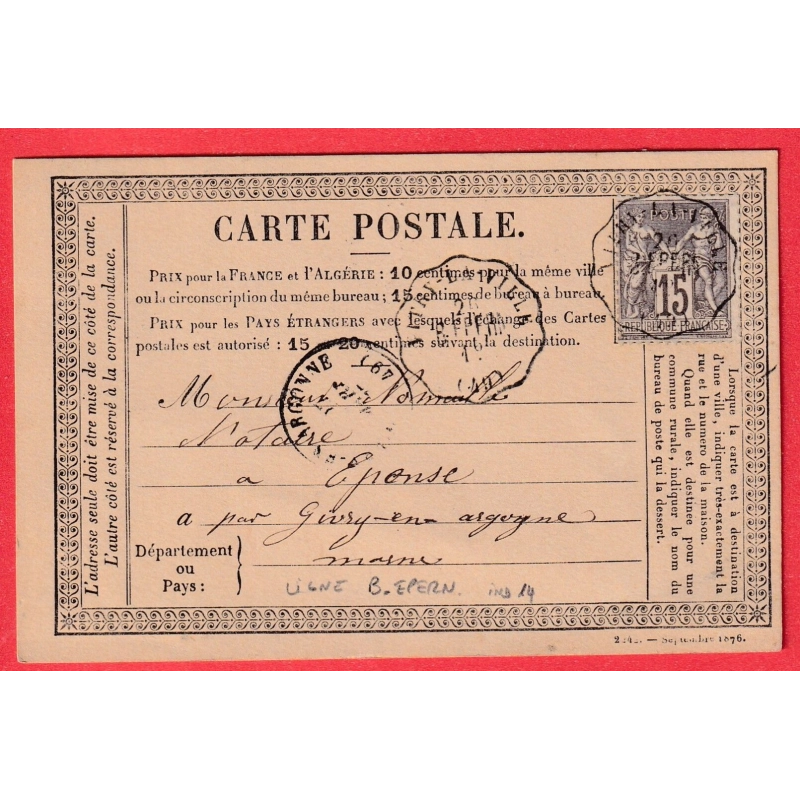 CARTE POSTALE.
PRIX pour la FRANCE et l'ALGÉRIE: 10 centimes pour la même ville
ou la circonscription du même bureau; 15 centimes de bureau à bureau.
PRIX pour les PAYS ÉTRANGERS avec lesquels l'échange des Cartes
postales est autorisé : 15 20 centimes suivant la destination.
L'adresse seule doit être mise de ce côté de la carte.
L'autre côté est réservé à la correspondance.
POSTE
15
REPUBLIQUE FRANÇAISE
LA-VILLE
ARGONNE
Monsieur
Notaire
a Eponse
a par Givry-en-argogne
marne
Département
ou
Pays :
LIGNE B. EPERN. IND 14
Lorsque la carte est à destination
d'une ville, indiquer très-exactement la
rue et le numero de la maison.
Quand elle est destinée pour une
commune rurale, indiquer le nom du
bureau de poste qui la dessert.
— Septembre 1876.